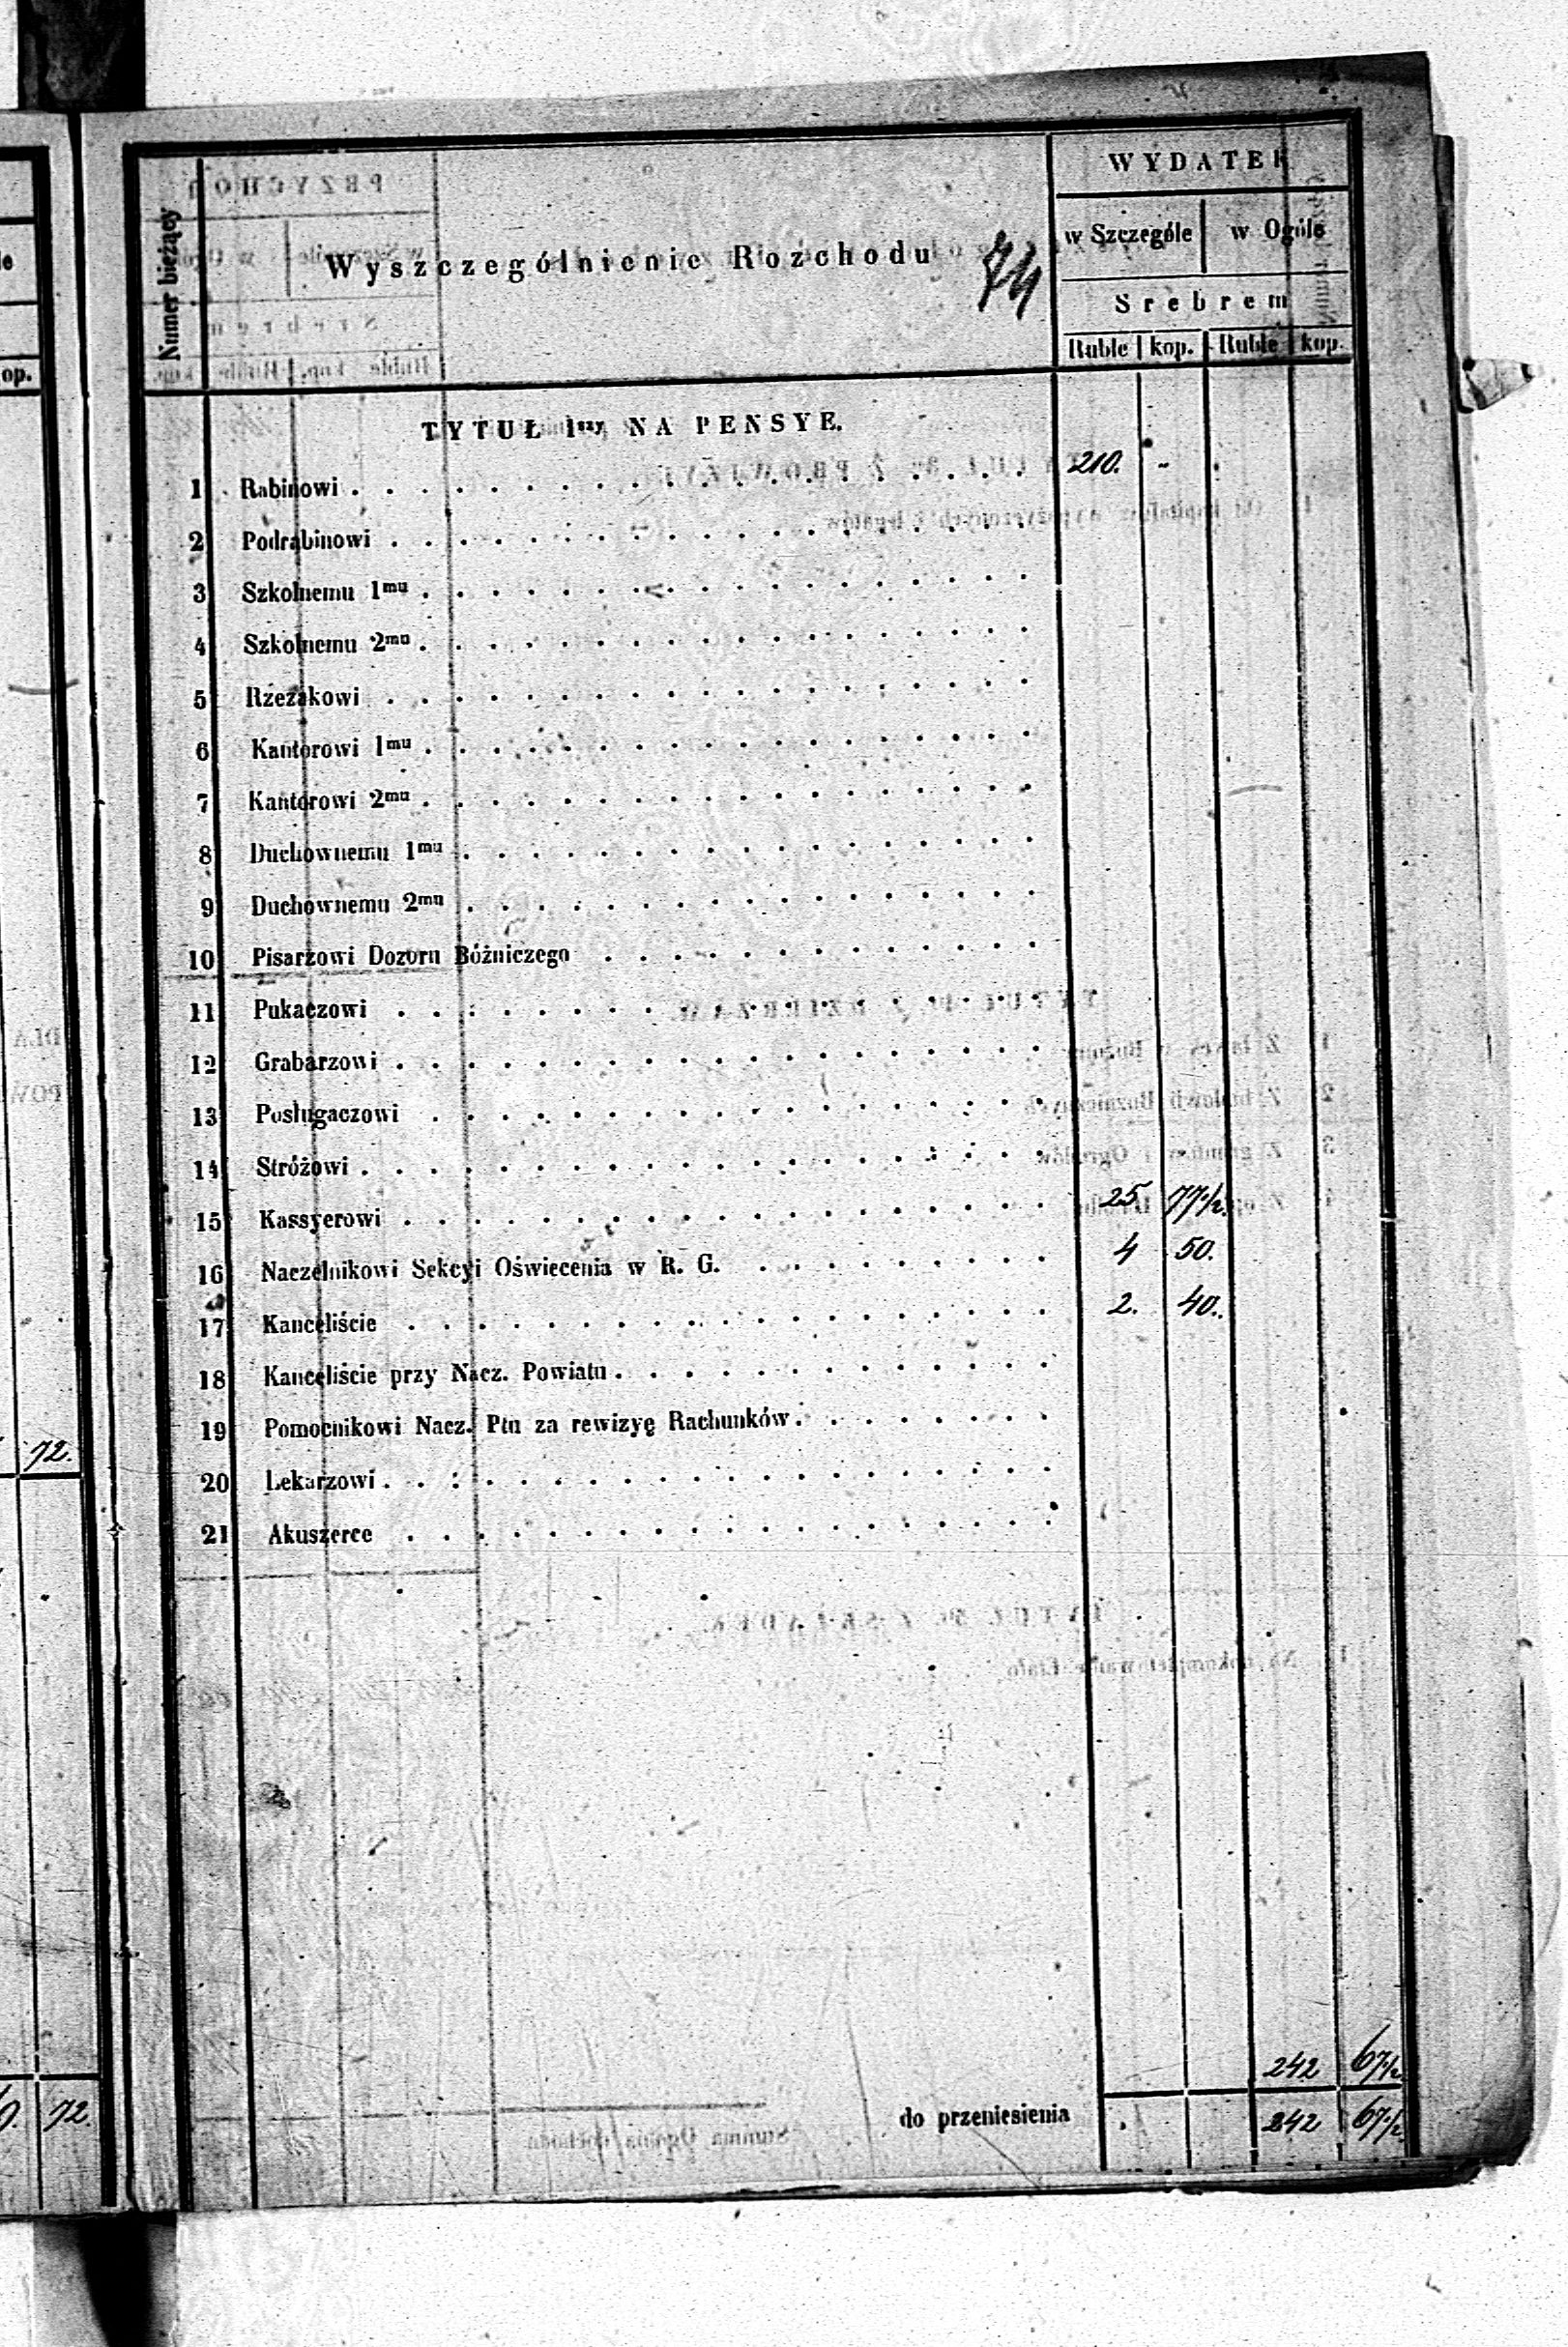 WYDATEK
Numer bieżący
Wyszczególnienie Rozchodu
74
w Szczególe w Ogóle
Srebrem
Ruble kop. Ruble kop.
op.
TYTUŁ 1szy NA PENSYE.
1 Rabinowi . . . 210. -
2 Podrabinowi
3 Szkolnemu 1mu
4 Szkolnemu 2mu
5 Rzezakowi
6 Kantorowi 1mu
7 Kantorowi 2mu
8 Duchownemu 1mu
9 Duchownemu 2mu
10 Pisarzowi Dozoru Bóżniczego
11 Pukaczowi
12 Grabarzowi
13 Posługaczowi
14 Stróżowi
15 Kassyerowi . . . 25 77 1/2.
16 Naczelnikowi Sekcyi Oświecenia w R. G. . . . 4 50.
17 Kanceliście . . . 2. 40.
18 Kanceliście przy Nacz. Powiatu
19 Pomocnikowi Nacz. Ptu za rewizyę Rachunków
72.
20 Lekarzowi
21 Akuszerce
242 67 1/2
72.
do przeniesienia 242 67 1/2